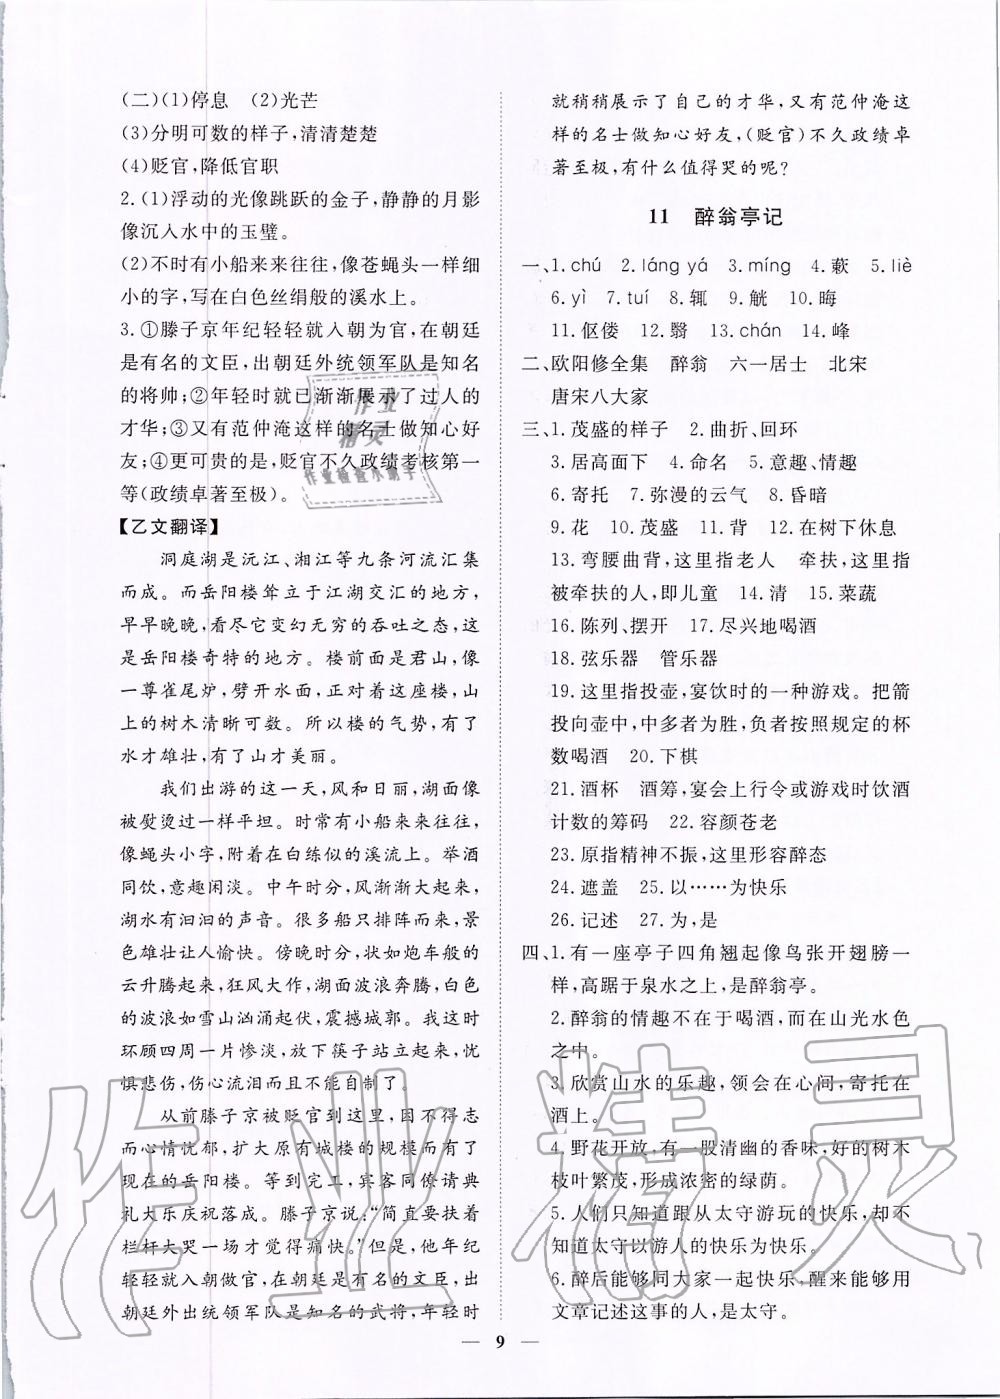 (二)(1)停息　(2)光芒
(3)分明可数的样子,清清楚楚
(4)贬官,降低官职
2.(1)浮动的光像跳跃的金子,静静的月影
像沉入水中的玉璧。
(2)不时有小船来来往往,像苍蝇头一样细
小的字,写在白色丝绢般的溪水上。
3.①滕子京年纪轻轻就入朝为官,在朝廷
是有名的文臣,出朝廷外统领军队是知名
的将帅;②年轻时就已渐渐展示了过人的
才华;③又有范仲淹这样的名士做知心好
友;④更可贵的是,贬官不久政绩考核第一
等(政绩卓著至极)。
【乙文翻译】
洞庭湖是沅江、湘江等九条河流汇集
而成。而岳阳楼耸立于江湖交汇的地方,
早早晚晚,看尽它变幻无穷的吞吐之态,这
是岳阳楼奇特的地方。楼前面是君山,像
一尊雀尾炉,劈开水面,正对着这座楼,山
上的树木清晰可数。所以楼的气势,有了
水才雄壮,有了山才美丽。
我们出游的这一天,风和日丽,湖面像
被熨烫过一样平坦。时常有小船来来往往,
像蝇头小字,附着在白练似的溪流上。举酒
同饮,意趣闲淡。中午时分,风渐渐大起来,
湖水有汩汩的声音。很多船只排阵而来,景
色雄壮让人愉快。傍晚时分,状如炮车般的
云升腾起来,狂风大作,湖面波浪奔腾,白色
的波浪如雪山汹涌起伏,震撼城郭。我这时
环顾四周一片惨淡,放下筷子站立起来,忧
惧悲伤,伤心流泪而不能自制了。
从前滕子京被贬官到这里,因不得志
而心情忧郁,扩大原有城楼的规模而有了
现在的岳阳楼。等到完工,宾客同僚请典
礼大乐庆祝落成。滕子京说:“简直要扶着
栏杆大哭一场才觉得痛快。”但是,他年纪
轻轻就入朝做官,在朝廷是有名的文臣,出
朝廷外出统领军队是知名的武将,年轻时
就稍稍展示了自己的才华,又有范仲淹这
样的名士做知心好友,(贬官)不久政绩卓
著至极,有什么值得哭的呢?
11　醉翁亭记
一、1. chú　2. láng yá　3. míng　4. 蔌　5. liè
6. yì　7. tuí　8. 辄　9. 觥　10. 晦
11. 伛偻　12. 翳　13. chán　14. 峰
二、欧阳修全集　醉翁　六一居士　北宋
唐宋八大家
三、1. 茂盛的样子　2. 曲折、回环
3. 居高面下　4. 命名　5. 意趣、情趣
6. 寄托　7. 弥漫的云气　8. 昏暗
9. 花　10. 茂盛　11. 背　12. 在树下休息
13. 弯腰曲背,这里指老人　牵扶,这里指
被牵扶的人,即儿童　14. 清　15. 菜蔬
16. 陈列、摆开　17. 尽兴地喝酒
18. 弦乐器　管乐器
19. 这里指投壶,宴饮时的一种游戏。把箭
投向壶中,中多者为胜,负者按照规定的杯
数喝酒　20. 下棋
21. 酒杯　酒筹,宴会上行令或游戏时饮酒
计数的筹码　22. 容颜苍老
23. 原指精神不振,这里形容醉态
24. 遮盖　25. 以……为快乐
26. 记述　27. 为,是
四、1. 有一座亭子四角翘起像鸟张开翅膀一
样,高踞于泉水之上,是醉翁亭。
2. 醉翁的情趣不在于喝酒,而在山光水色
之中。
3. 欣赏山水的乐趣,领会在心间,寄托在
酒上。
4. 野花开放,有一股清幽的香味,好的树木
枝叶繁茂,形成浓密的绿荫。
5. 人们只知道跟从太守游玩的快乐,却不
知道太守以游人的快乐为快乐。
6. 醉后能够同大家一起快乐,醒来能够用
文章记述这事的人,是太守。
— 9 —
作业
精灵
作业检查小助手
作业精灵